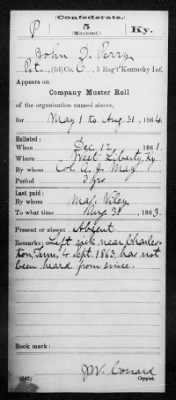 Confederate.
P 5 Ky.
(Mounted)
John D. Perry
Pvt., (3d) Co. C, 5 Reg't Kentucky Inf.
Appears on
Company Muster Roll
of the organization named above,
for May 1 to Aug 31, 1864.
Enlisted:
When Dec 12, 1861.
Where West Liberty, Ky
By whom Col. A. J. May
Period 3 yrs
Last paid:
By whom Maj. Viley
To what time Aug 31, 1863.
Present or absent Absent
Remarks: Left sick near Charles-
ton, Tenn, 4 Sept. 1863, has not
been heard from since.
Book mark:
Conard
(642) Copyist.